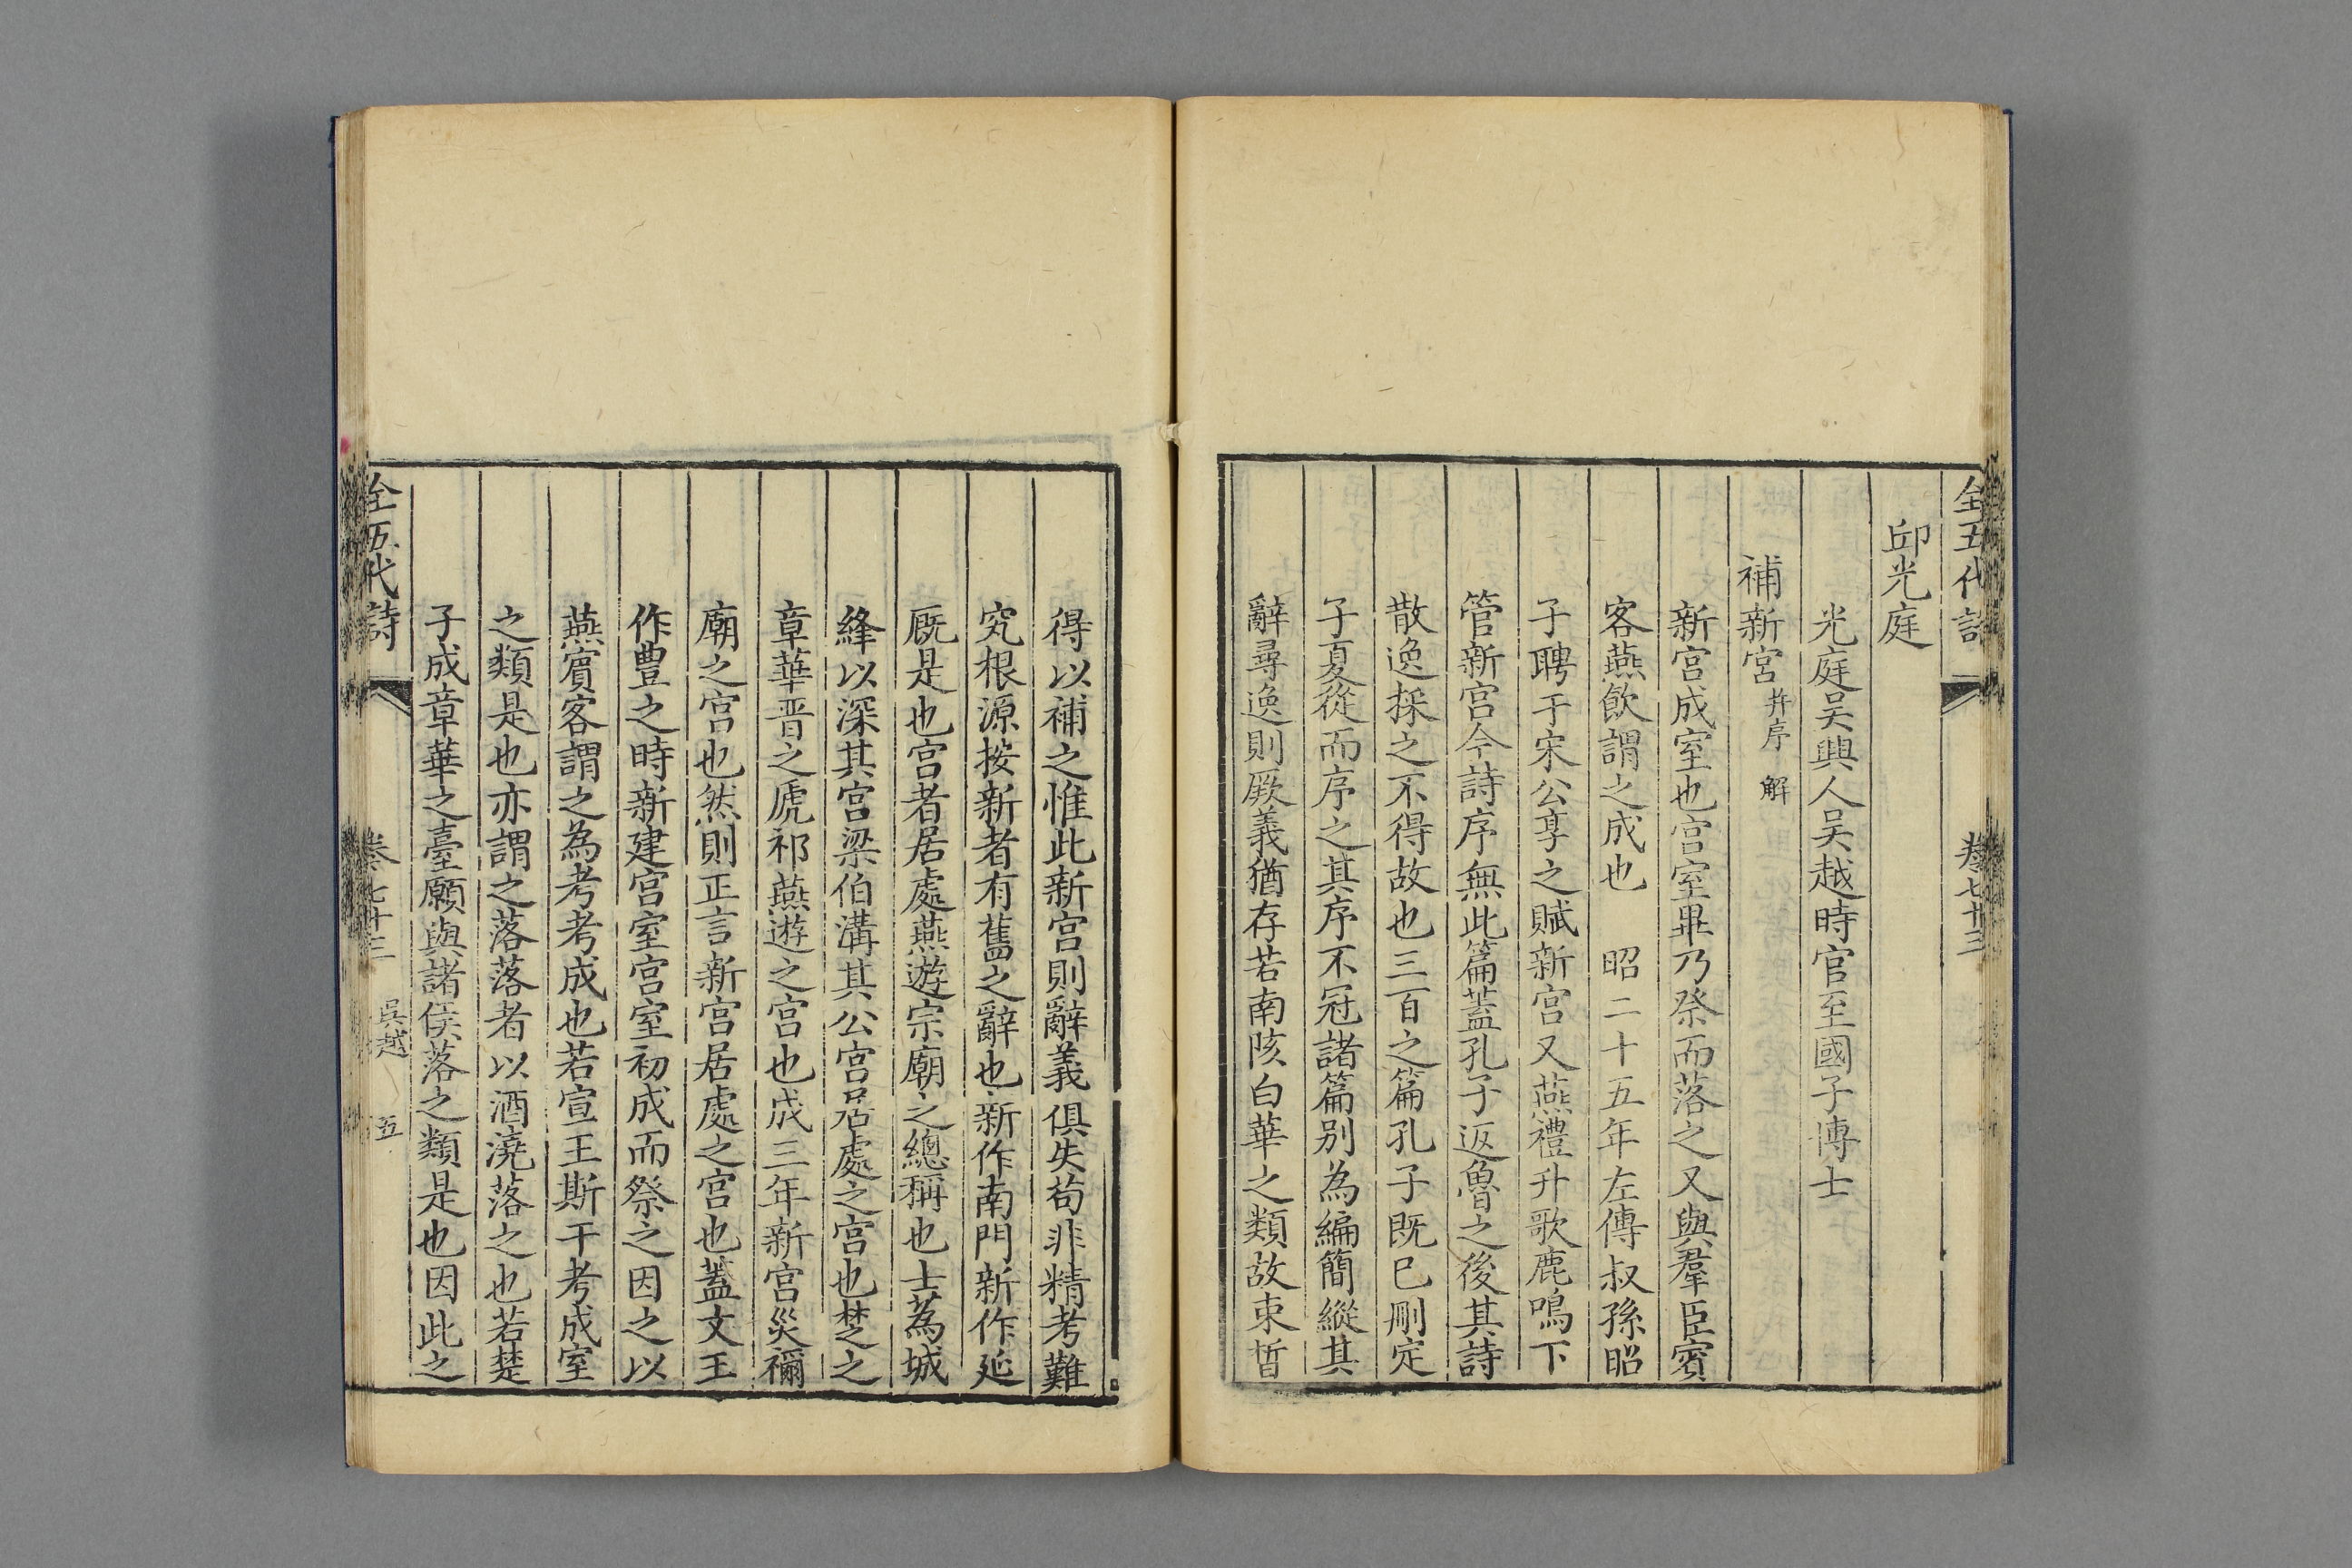 全五代詩 卷七十三
邱光庭
光庭吳興人吳越時官至國子博士
補新宮并序 解
新宮成室也宮室畢乃祭而落之又與羣臣賓
客燕飲謂之成也 昭二十五年左傳叔孫昭
子聘于宋公享之賦新宮又燕禮升歌鹿鳴下
管新宮今詩序無此篇蓋孔子返魯之後其詩
散逸採之不得故也三百之篇孔子既已刪定
子夏從而序之其序不冠諸篇別為編簡縱其
辭尋逸則厥義猶存若南陔白華之類故束晳
得以補之惟此新宮則辭義俱失苟非精考難
究根源按新者有舊之辭也新作南門新作延
厩是也宮者居處燕遊宗廟之總稱也士蒍城
絳以深其宮梁伯溝其公宮居處之宮也楚之
章華晋之虒祁燕遊之宮也成三年新宮災禰
廟之宮也然則正言新宮居處之宮也蓋文王
作豊之時新建宮室宮室初成而祭之因之以
燕賓客謂之為考考成也若宣王斯干考成室
之類是也亦謂之落落者以酒澆落之也若楚
子成章華之臺願與諸侯落之類是也因此之
全五代詩 卷七十三 吳越 五